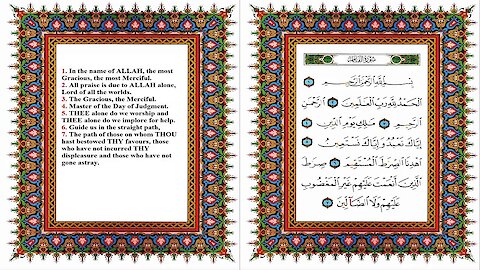 1. In the name of ALLAH, the most
Gracious, the most Merciful.
2. All praise is due to ALLAH alone,
Lord of all the worlds.
3. The Gracious, the Merciful.
4. Master of the Day of Judgment.
5. THEE alone do we worship and
THEE alone do we implore for help.
6. Guide us in the straight path,
7. The path of those on whom THOU
hast bestowed THY favours, those
who have not incurred THY
displeasure and those who have not
gone astray.
سُورَةُ الفَاتِحَةِ
بِسْمِ ٱللَّهِ ٱلرَّحْمَٰنِ ٱلرَّحِيمِ
ٱلْحَمْدُ لِلَّهِ رَبِّ ٱلْعَٰلَمِينَ ٱلرَّحْمَٰنِ
ٱلرَّحِيمِ مَٰلِكِ يَوْمِ ٱلدِّينِ
إِيَّاكَ نَعْبُدُ وَإِيَّاكَ نَسْتَعِينُ
ٱهْدِنَا ٱلصِّرَٰطَ ٱلْمُسْتَقِيمَ صِرَٰطَ
ٱلَّذِينَ أَنْعَمْتَ عَلَيْهِمْ غَيْرِ ٱلْمَغْضُوبِ
عَلَيْهِمْ وَلَا ٱلضَّآلِّينَ